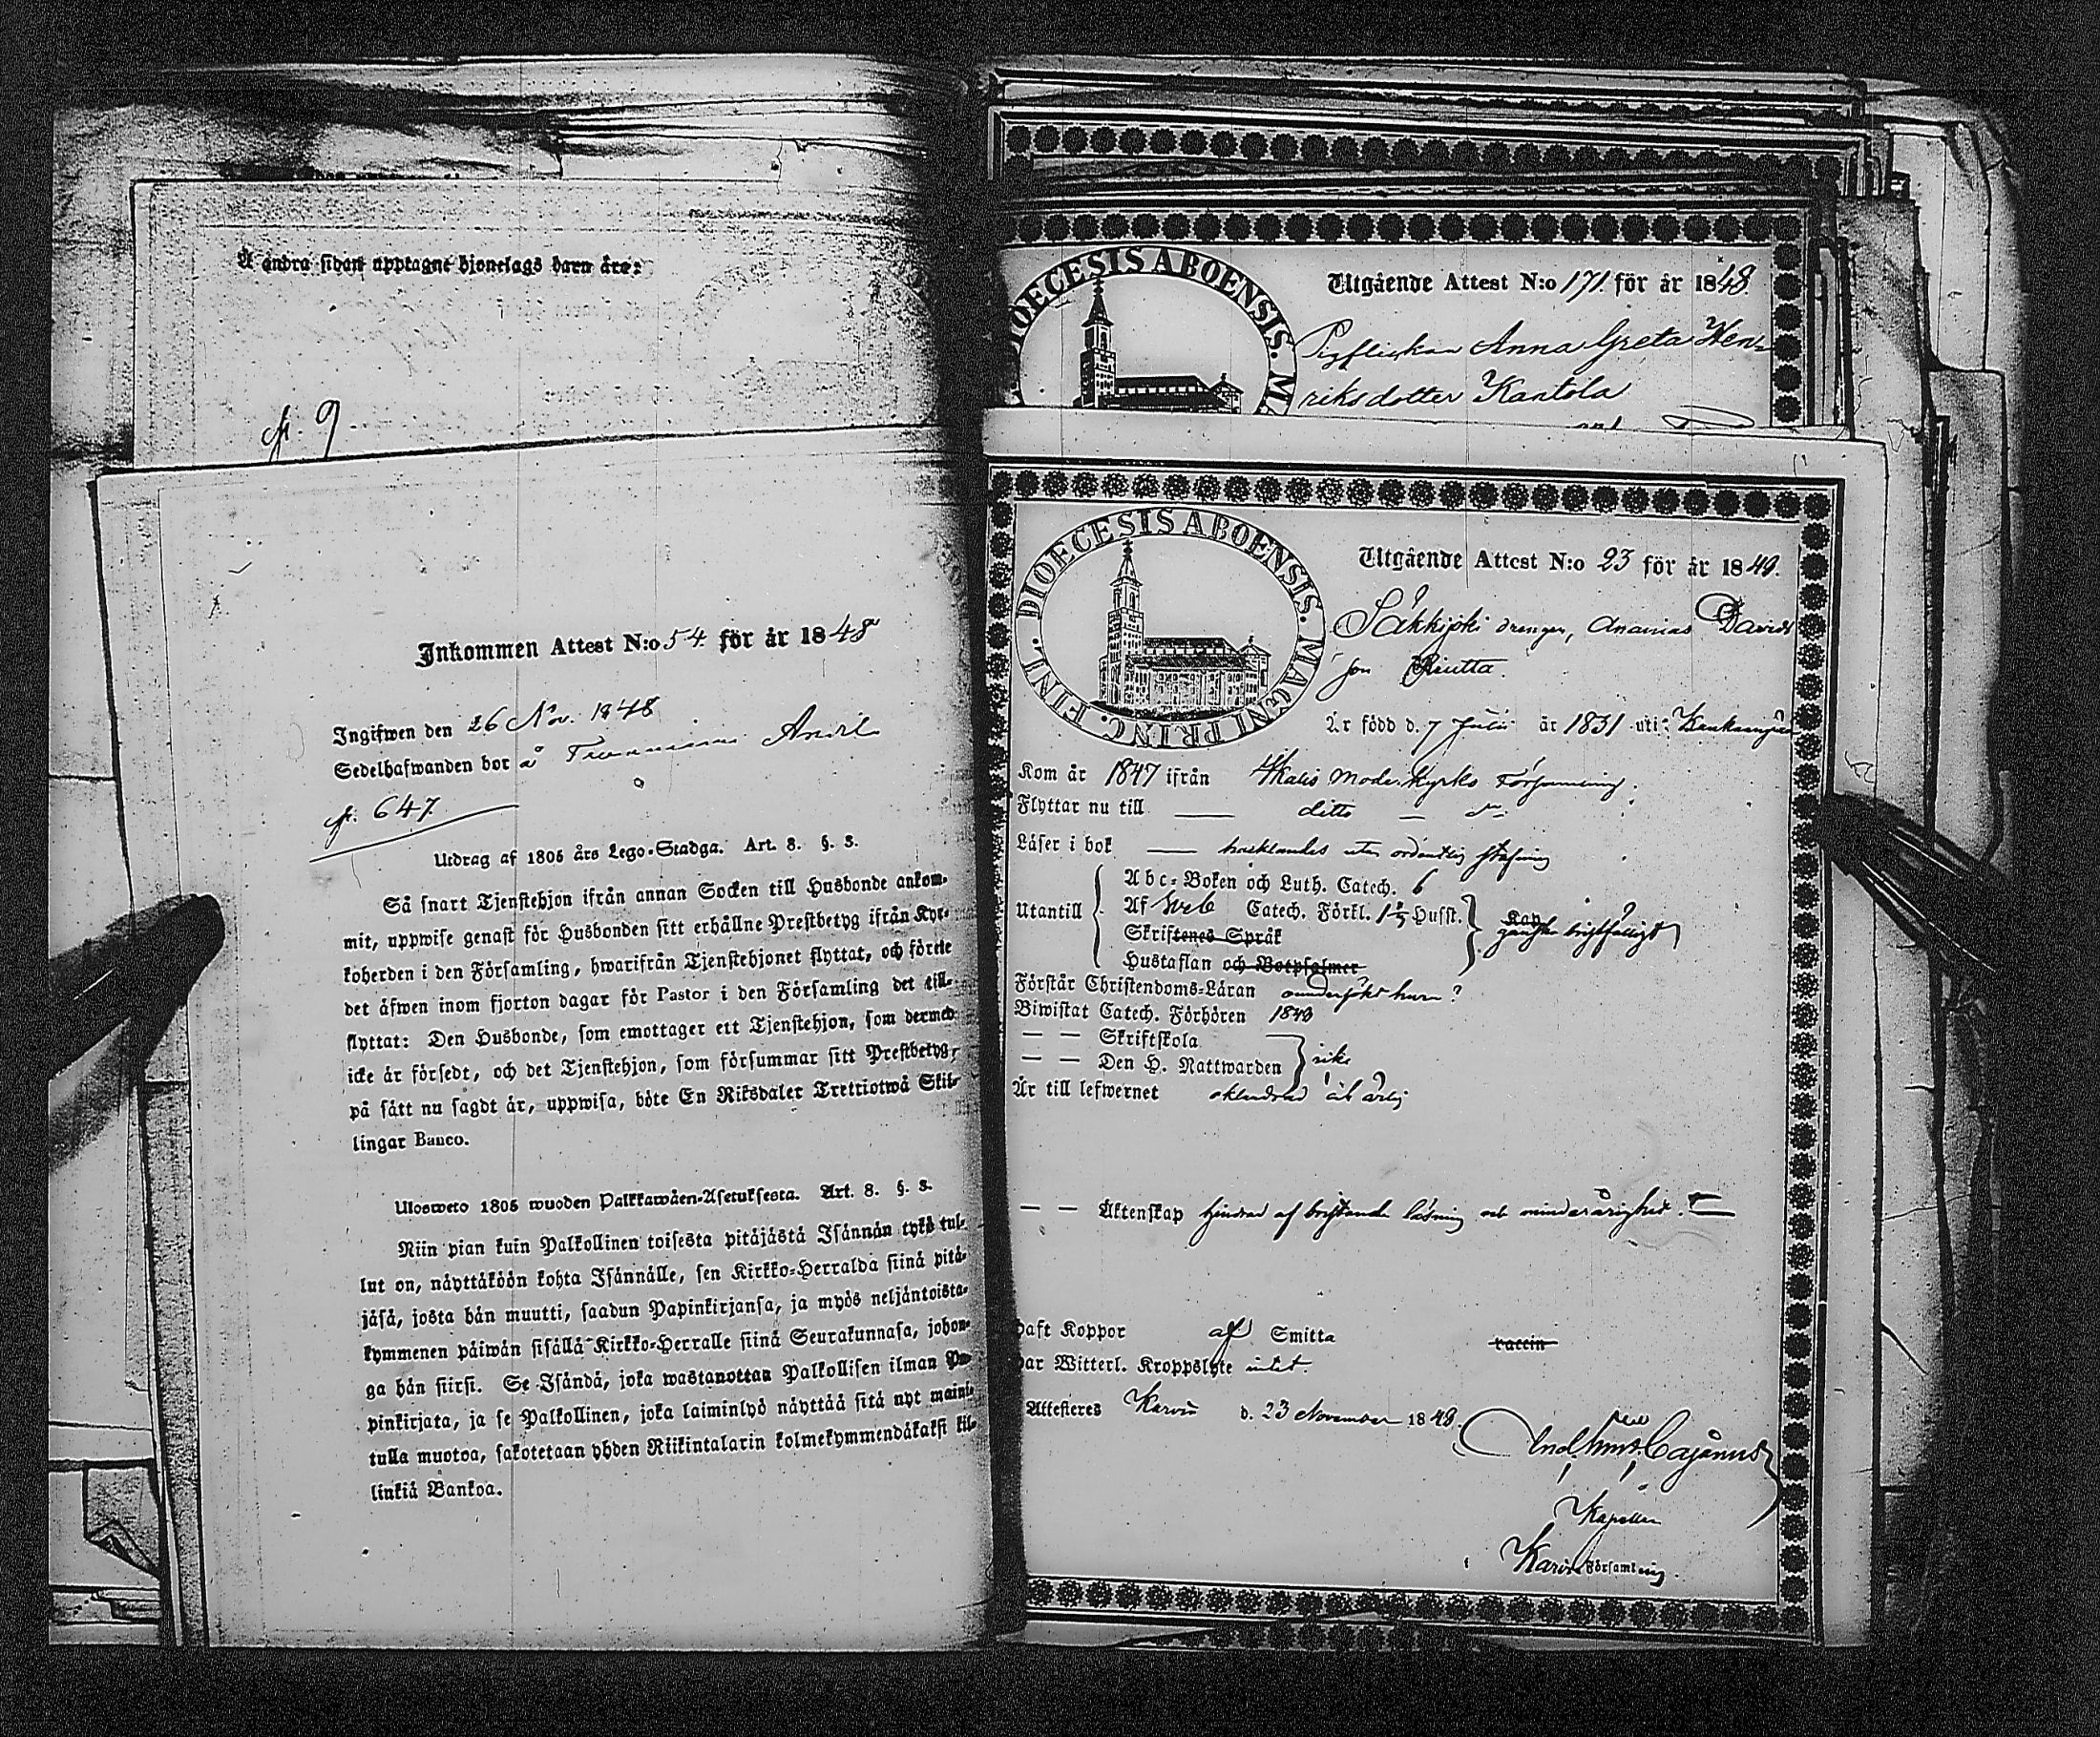 Å andra sidan upptagne hjonelags barn äro:
p. 9
Inkommen Attest N:o 54. för år 1848
Ingifwen den 26 Nov. 1848
Sedelhafwanden bor å
p. 647.
Utdrag af 1805 års Lego-Stadga. Art. 8. §. 3.
Så snart Tjenstehjon ifrån annan Socken till Husbonde ankom-
mit, uppwise genast för Husbonden sitt erhållne Prestbetyg ifrån Kyr-
koherden i den Församling, hwarifrån Tjenstehjonet flyttat, och förete
det äfwen inom fjorton dagar för Pastor i den Församling det till-
flyttat: Den Husbonde, som emottager ett Tjenstehjon, som dermed
icke är försedt, och det Tjenstehjon, som försummar sitt Prestbetyg,
på sätt nu sagdt är, uppwisa, böte En Riksdaler Trettiotwå Skil-
lingar Banco.
Ulosweto 1805 wuoden Palkkawäen-Asetuksesta. Art. 8. §. 3.
Niin pian kuin Palkollinen toisesta pitäjästä Isännän tykö tul-
lut on, näyttäköön kohta Isännälle, sen Kirkko-Herralda siinä pitä-
jäsä, josta hän muutti, saadun Papinkirjansa, ja myös neljäntoista-
kymmenen päiwän sisällä Kirkko-Herralle siinä Seurakunnasa, johon-
ga hän siirsi. Se Isändä, joka wastanottaa Palkollisen ilman Pa-
pinkirjata, ja se Palkollinen, joka laiminlyö näyttää sitä nyt maini-
tulla muotoa, sakotetaan yhden Riikintalarin kolmekymmendäkaksi kil-
linkiä Bankoa.
DIOECESIS ABOENSIS. MA
Utgående Attest N:o 171. för år 1848.
Pigflickan Anna Greta Hen-
riksdotter Kantola
DIOECESIS ABOENSIS. MAGNI PRINC. FINL.
Utgående Attest N:o 23 för år 1848.
Säkkijoki drengen, Ananias Davids
son Riutta.
Är född d. 7 Julii år 1831 uti Kankaanpää
Kom år 1847 ifrån Ikalis Moderkyrko Församling.
Flyttar nu till ditto
Läser i bok hacklandes utan ordentlig stafning
Utantill
Abc-Boken och Luth. Catech. 6
Af Sveb Catech. Förkl. Husst.
Skriftenes Språk
Hustaflan och Botpsalmer
ganska bristfälligt
Förstår Christendoms-Läran
Biwistat Catech. Förhören 1848
— — Skriftskola
— — Den H. Nattwarden
icke
Är till lefwernet oklandrad och ärlig
— — Äktenskap hindrad af bristande läsning och minderårighet.
Haft Koppor af Smitta vaccin
Har Witterl. Kroppslyte intet.
Attesteras Karvia d. 23 November 1848.
Cajanus
Kapellan
Karvia Församling.